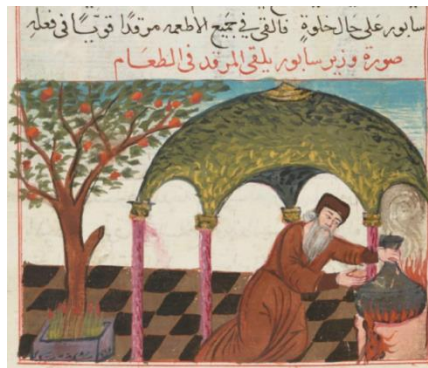 سابور على حال خلوةٍ فالقى فى جميع الاطعمه مرقدًا قويًّا فى فعله
صورة وزير سابور يلقى المرقد فى الطعَام